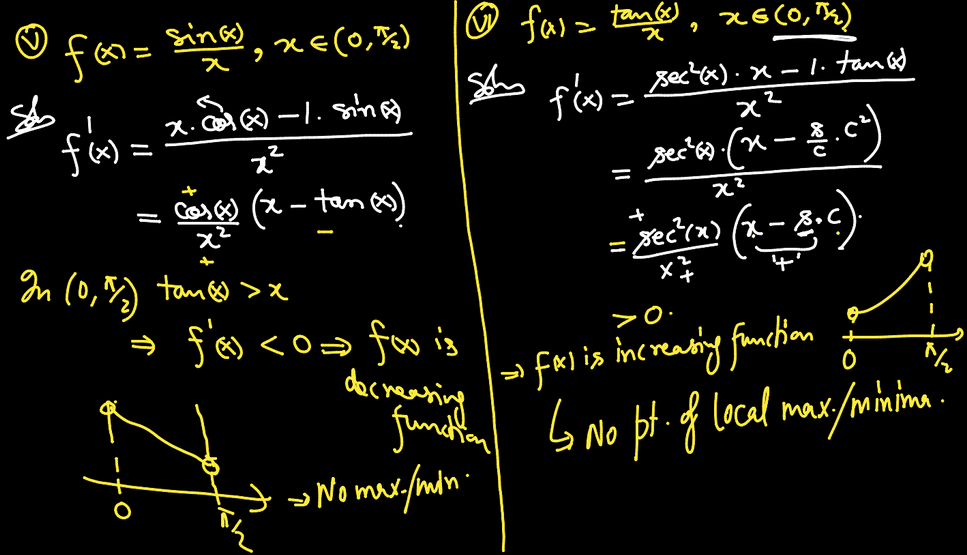 (v) f(x) = sin(x)/x, x ∈ (0, π/2)
Soln
f'(x) = (x · cos(x) − 1 · sin(x))/x²
= cos(x)/x² (x − tan(x))
+
−
+
In (0, π/2) tan(x) > x
⇒ f'(x) < 0 ⇒ f(x) is
decreasing
function
0
π/2
→ No max./min.
(vi) f(x) = tan(x)/x, x ∈ (0, π/2)
Soln
f'(x) = (sec²(x) · x − 1 · tan(x))/x²
= sec²(x) · (x − s/c · c²)/x²
= sec²(x)/x² (x − s · c).
+
+
'+'
> 0.
⇒ f(x) is increasing function
0
π/2
↳ No pt. of local max./minima.